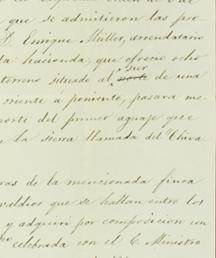 que se admitieron las pro
D. Enrique Müller, arrendatario
ta hacienda, que ofreció ocho
sur
terreno situado al norte de una
oriente a poniente, pasara me
norte del primer aguaje que
la sierra llamada del Chiva
ras de la mencionada finca
valdios que se hallan entre los
y adquirí por composicion con
celebrada con el C. Ministro